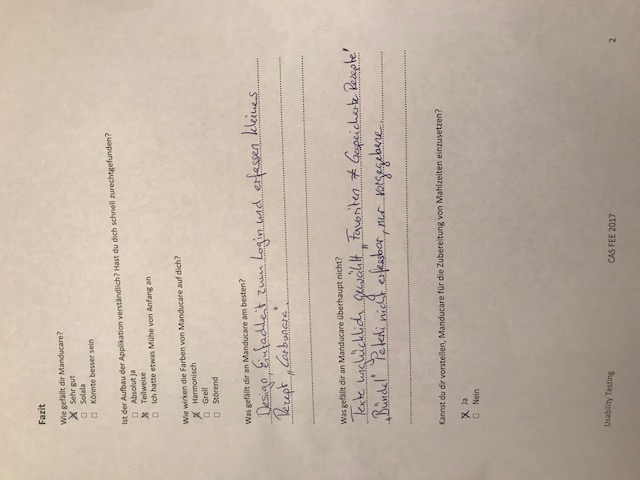 Fazit
Wie gefällt dir Manducare?
Sehr gut
Solala
Könnte besser sein
Ist der Aufbau der Applikation verständlich? Hast du dich schnell zurechtgefunden?
Absolut ja
Teilweise
Ich hatte etwas Mühe von Anfang an
Wie wirken die Farben von Manducare auf dich?
Harmonisch
Grell
Störend
Was gefällt dir an Manducare am besten?
Design, Einfachheit zum Login und erfassen kleines
Rezept „Carbonara".
Was gefällt dir an Manducare überhaupt nicht?
Texte unglücklich gewählt „Favoriten ≠ Gespeicherte Rezepte"
„Bündel" Peterli nicht erfassbar, nur vorgegebene
Kannst du dir vorstellen, Manducare für die Zubereitung von Mahlzeiten einzusetzen?
Ja
Nein
Usability Testing CAS FEE 2017 2